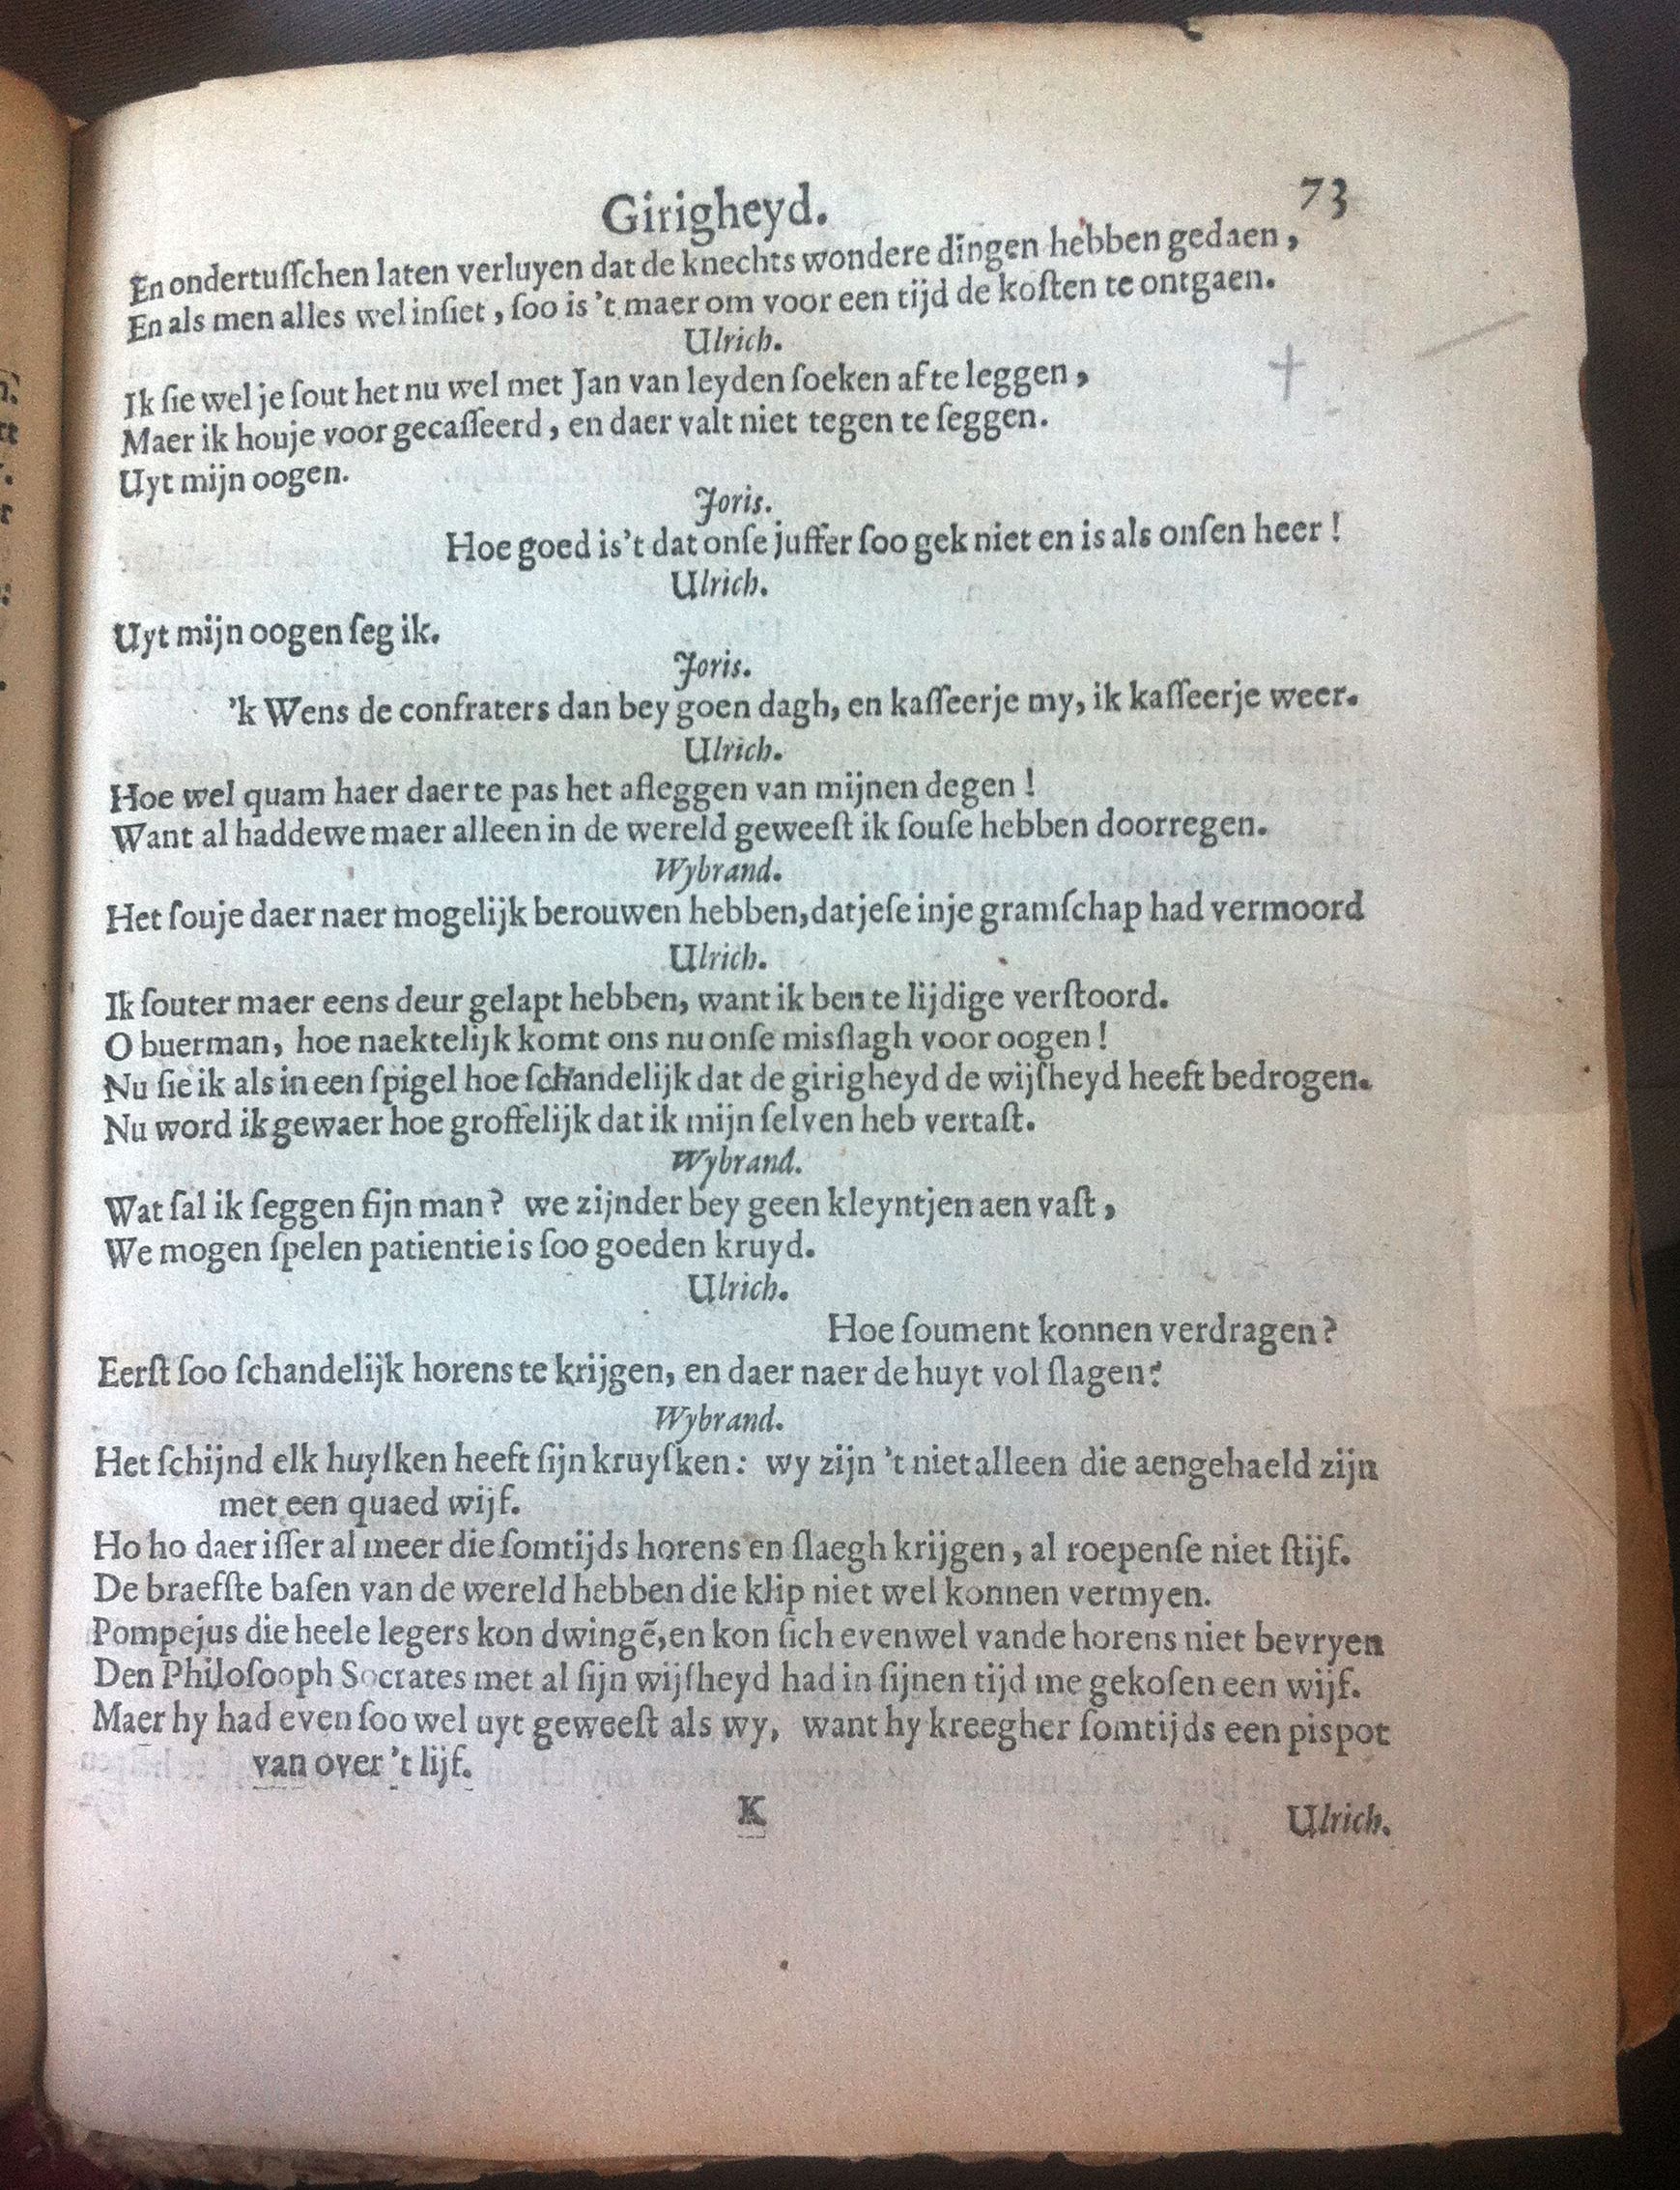 Girigheyd. 73
En ondertuſſchen laten verluyen dat de knechts wondere dingen hebben gedaen,
En als men alles wel inſiet, ſoo is 't maer om voor een tijd de koſten te ontgaen.
Ulrich.
Ik ſie wel je ſout het nu wel met Jan van leyden ſoeken af te leggen,
Maer ik houje voor gecaſſeerd, en daer valt niet tegen te ſeggen.
Uyt mijn oogen.
Joris.
Hoe goed is't dat onſe juffer ſoo gek niet en is als onſen heer!
Ulrich.
Uyt mijn oogen ſeg ik.
Joris.
'k Wens de confraters dan bey goen dagh, en kaſſeerje my, ik kaſſeerje weer.
Ulrich.
Hoe wel quam haer daer te pas het afleggen van mijnen degen!
Want al haddewe maer alleen in de wereld geweeſt ik ſouſe hebben doorregen.
Wybrand.
Het ſouje daer naer mogelijk berouwen hebben, datjeſe inje gramſchap had vermoord
Ulrich.
Ik ſouter maer eens deur gelapt hebben, want ik ben te lijdige verſtoord.
O buerman, hoe naektelijk komt ons nu onſe misſlagh voor oogen!
Nu ſie ik als in een ſpigel hoe ſchandelijk dat de girigheyd de wijſheyd heeft bedrogen.
Nu word ik gewaer hoe groffelijk dat ik mijn ſelven heb vertaſt.
Wybrand.
Wat ſal ik ſeggen fijn man? we zijnder bey geen kleyntjen aen vaſt,
We mogen ſpelen patientie is ſoo goeden kruyd.
Ulrich.
Hoe ſoument konnen verdragen?
Eerſt ſoo ſchandelijk horens te krijgen, en daer naer de huyt vol ſlagen?
Wybrand.
Het ſchijnd elk huyſken heeft ſijn kruyſken: wy zijn 't niet alleen die aengehaeld zijn
met een quaed wijf.
Ho ho daer iſſer al meer die ſomtijds horens en ſlaegh krijgen, al roepenſe niet ſtijf.
De braefſte baſen van de wereld hebben die klip niet wel konnen vermyen.
Pompejus die heele legers kon dwingẽ, en kon ſich evenwel vande horens niet bevryen
Den Philoſooph Socrates met al ſijn wijſheyd had in ſijnen tijd me gekoſen een wijf.
Maer hy had even ſoo wel uyt geweeſt als wy, want hy kreegher ſomtijds een pispot
van over 't lijf.
K Ulrich.